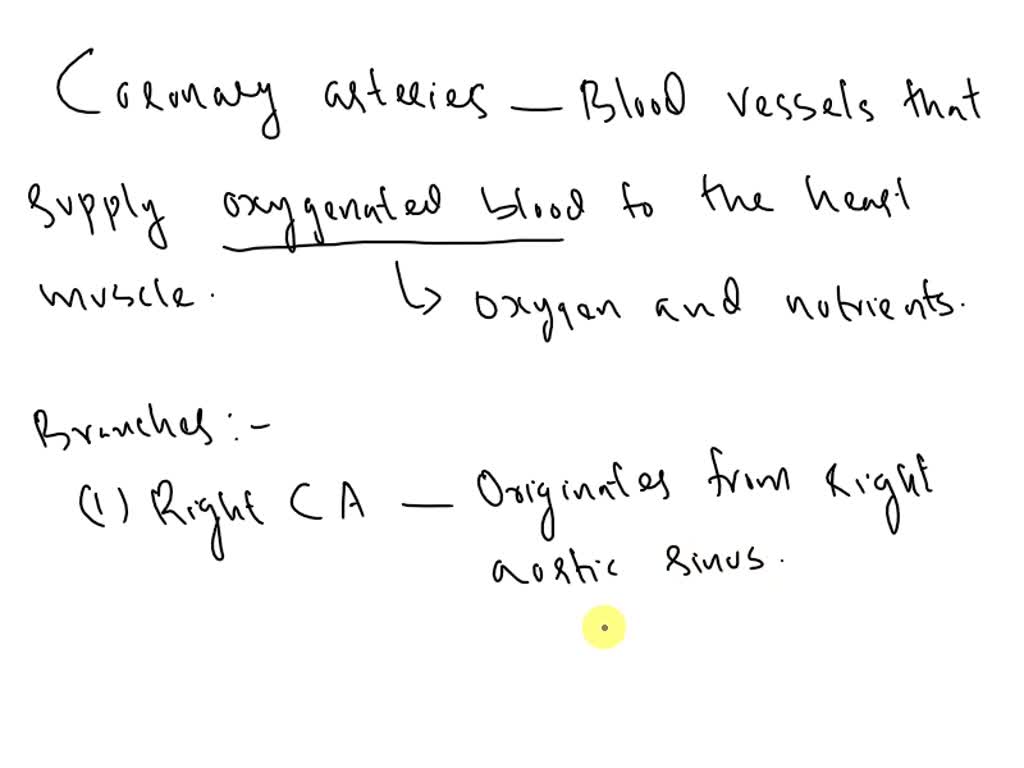 Coronary arteries — Blood vessels that
supply oxygenated blood to the heart
muscle. ↳ oxygen and nutrients.
Branches :-
(1) Right CA — Originates from Right
aortic sinus.